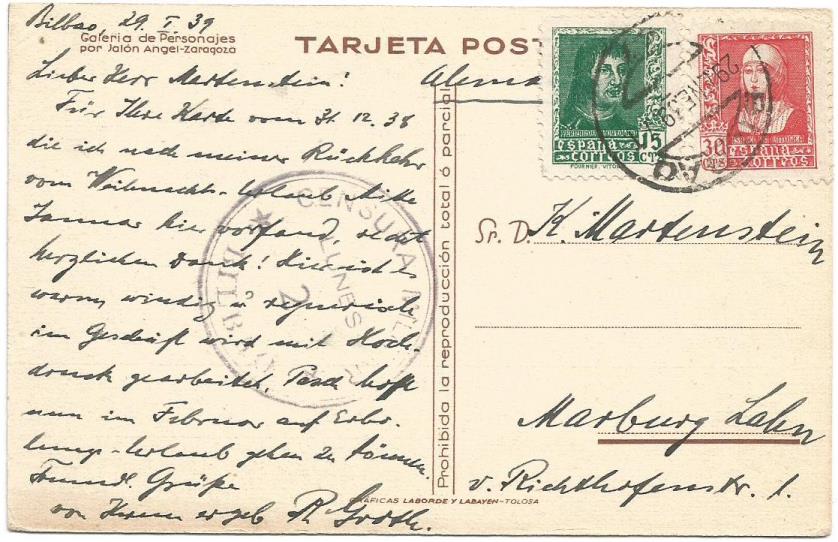 Bilbao, 29. I. 39
Galeria de Personajes
por Jalón Angel-Zaragoza
TARJETA POST
Lieber Herr Martenstein!
Für Ihre Karte vom 31.12.38
die ich nach meiner Rückkehr
vom Weihnachts-Urlaub Mitte
Januar hier vorfand, recht
herzlichen Dank! Hier ist es
warm, windig u. regnerisch
im Geschäft wird mit Hoch-
druck gearbeitet. hofft
nun im Februar auf Erho-
lungs-Urlaub gehen zu können.
Freundl. Grüße
von Ihrem ergeb. R. Groth.
Alema
ESPAÑA
CORREOS
15 CTS
FOURNIER. VITORIA
30 CTS
ESPAÑA
CORREOS
29 ENE. 39
CENSURA MILITAR
LUNES
2
BILBAO
Prohibida la reproducción total ó parcial
Sr. D. K. Martenstein
Marburg Lahn
v. Richthofenstr. 1.
GRÁFICAS LABORDE Y LABAYEN-TOLOSA